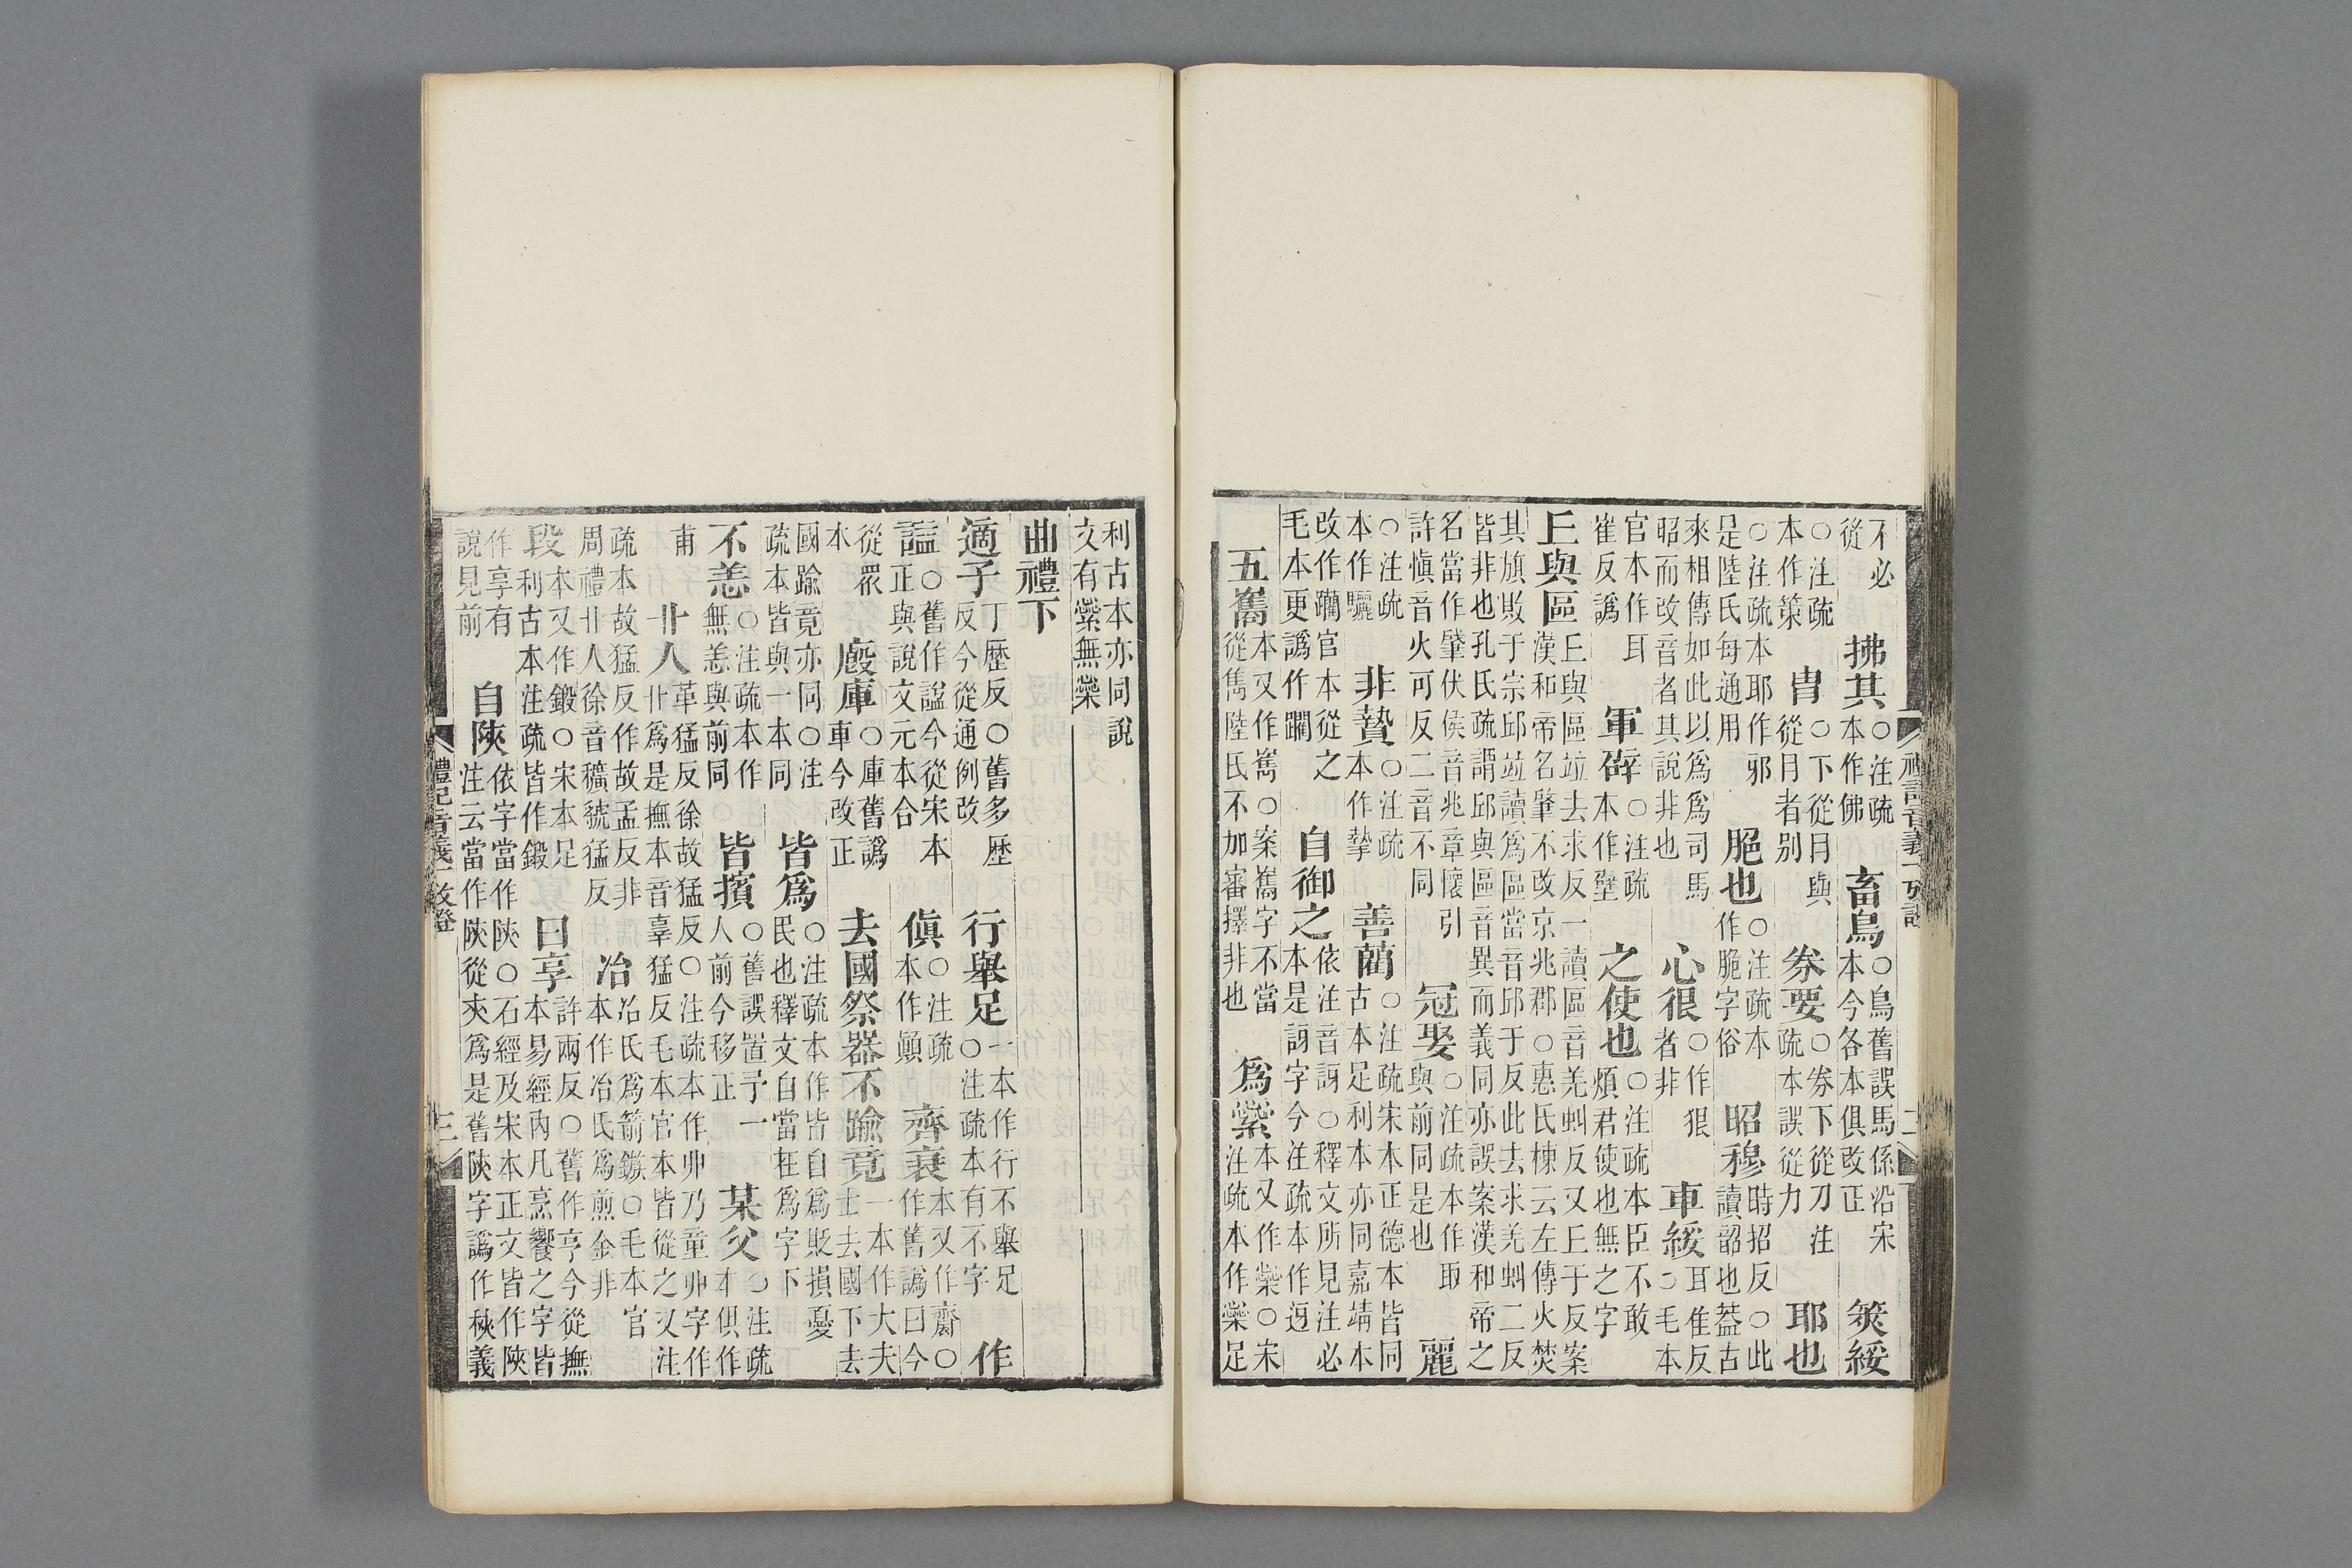 不必從 拂其○注疏本作佛 畜鳥○鳥舊誤馬係沿宋本今各本俱改正 筴綏
○注疏本作策 冑○下從冃與從月者别 券要○券下從刀注疏本誤從力 耶也
○注疏本耶作邪是陸氏每通用 脃也○注疏本作脆字俗 昭穆時招反○此讀韶也葢古
來相傳如此以爲爲司馬昭而改音者其說非也 心很○作狠者非 車綏耳隹反○毛本
官本作耳崔反譌 軍礕○注疏本作壁 之使也○注疏本臣不敢煩君使也無之字
丘與區丘與區竝去求反一讀區音羌虯反又丘于反案漢和帝名肇不改京兆郡○惠氏棟云左傳火焚
其旗敗于宗邱竝讀爲區當音邱于反此去求羌虯二反皆非也孔氏疏謂邱與區音異而義同亦誤案漢和帝之
名當作肇伏侯音兆章懷引許愼音火可反二音不同 冠娶○注疏本作取與前同是也 麗
○注疏本作驪 非贄○注疏本作摯 善藺○注疏宋本正德本皆同古本足利本亦同嘉靖本
改作躪官本從之毛本更譌作躙 自御之依注音訝○釋文所見注必本是訝字今注疏本作迓
五巂本又作嶲○案嶲字不當從雋陸氏不加審擇非也 爲縈本又作橤○宋注疏本作橤足
禮記音義一攷證 二
利古本亦同說文有縈無橤
曲禮下
適子丁歷反○舊多歷反今從通例改 行舉足一本作行不舉足○注疏本有不字 作
謚○舊作諡今從宋本正與說文元本合 傎○注疏本作顚 齊衰本又作齋○作舊譌曰今
從眾本 廏庫○庫舊譌車今改正 去國祭器不踰竟一本作大夫士去國下去
國踰竟亦同○注疏本皆與一本同 皆爲○注疏本作皆自爲貶損憂民也釋文自當在爲字下
不恙○注疏本作無恙與前同 皆擯○舊誤置予一人前今移正 某父○注疏本俱作
甫 卝人革猛反徐故猛反○注疏本作丱乃童丱字作卝爲是撫本音辜猛反毛本官本皆從之又注
疏本故猛反作故孟反非周禮卝人徐音穬虢猛反 冶冶氏爲箭鏃○毛本官本作冶氏爲煎金非
段本又作鍛○宋本足利古本注疏皆作鍛 曰享許兩反○舊作亨今從撫本易經内凡烹饗之字皆
作享有說見前 自陝依字當作陜○石經及宋本正文皆作陝注云當作陜從夾爲是舊陜字譌作秧義
禮記音義一攷證 三